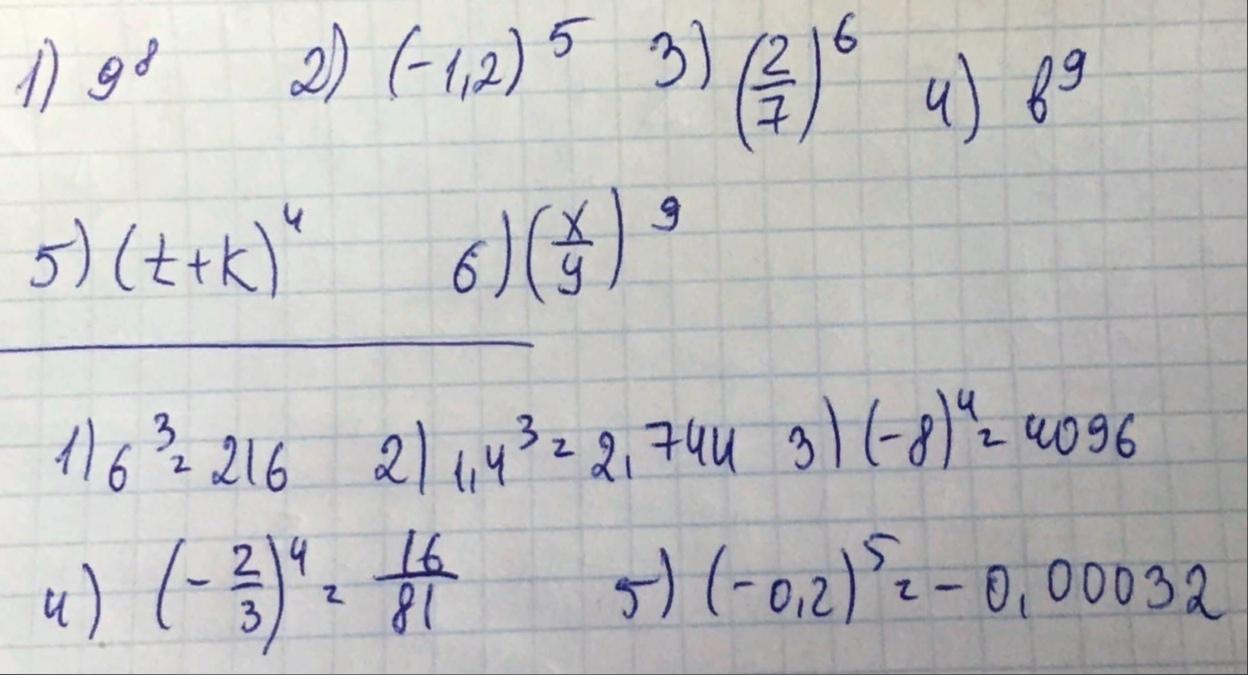 1) 9⁸ 2) (-1,2)⁵ 3) (2/7)⁶ 4) b⁹
5) (t+k)⁴ 6) (x/y)⁹
1) 6³ = 216 2) 1,4³ = 2,744 3) (-8)⁴ = 4096
4) (-2/3)⁴ = 16/81 5) (-0,2)⁵ = -0,00032